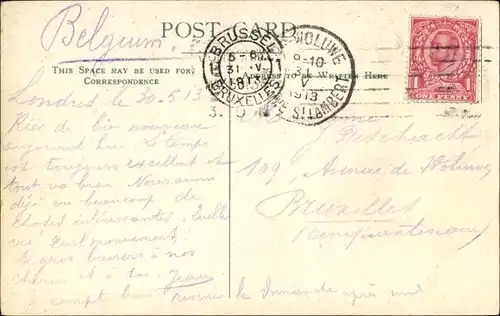 Belgium
POST CARD
THIS SPACE MAY BE USED FOR
CORRESPONDENCE
ADDRESS TO BE WRITTEN HERE
BRUSSEL
31 V
1913
BRUXELLES
1913
ST LAMBERT
ONE PENNY
Londres le 30.5.13
Rien de bien nouveau
aujourd'hui. Le temps
est toujours excellent et
tout va bien. Nous avons
déjà vu beaucoup de
choses intéressantes. Quelle
vie! Quel mouvement!
De gros baisers à nos
chéries et à toi. Jean
Je compte bien revenir le dimanche après midi
Deschacht
109, Avenue de
Bruxelles
Cinquantenaire